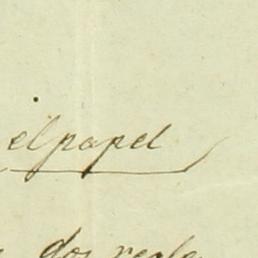 el papel
dos reale